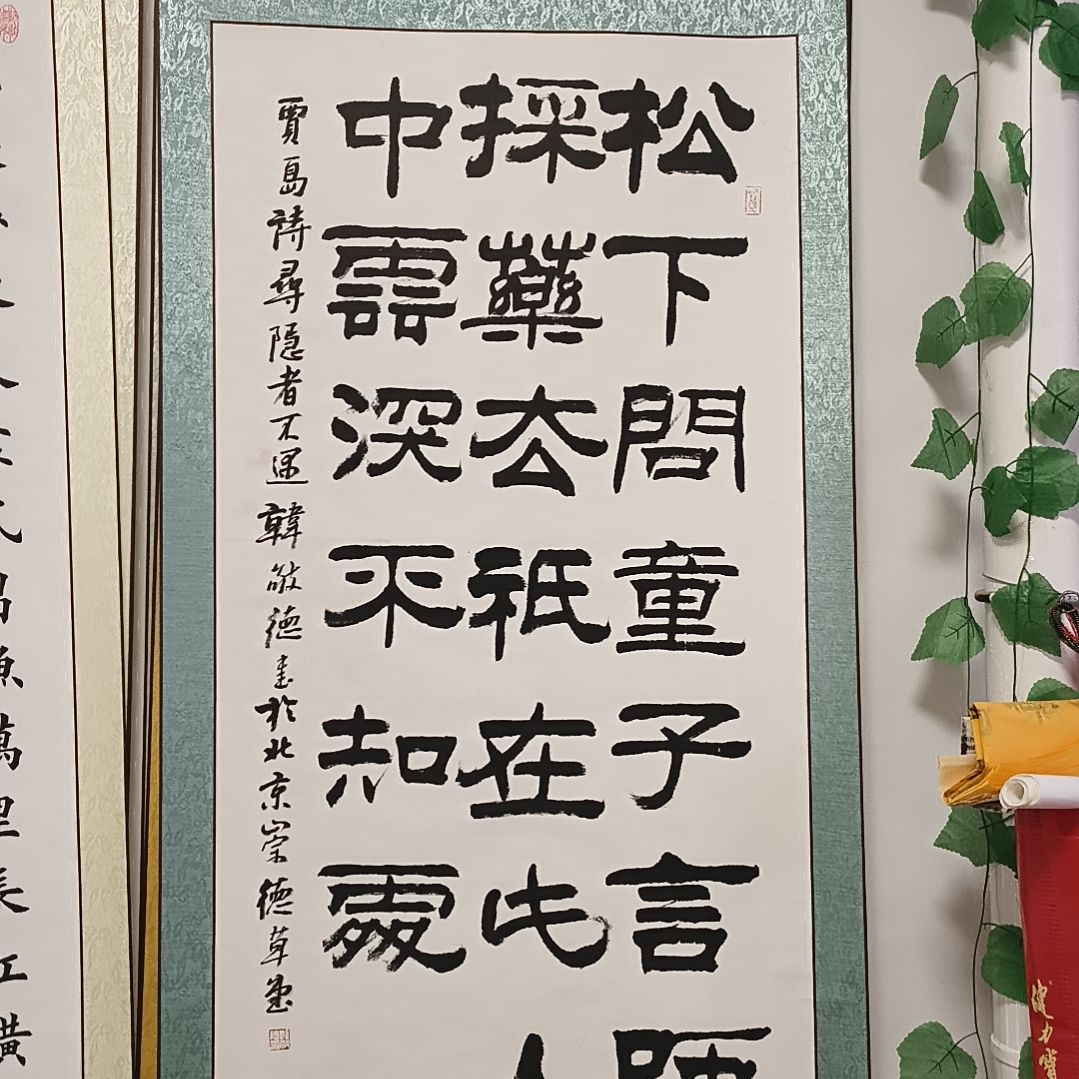 松下問童子言師
採藥去祇在此
中雲深不知處
賈島詩尋隱者不遇 韓敬德書於北京崇德草堂
昌魚萬里長江橫
健力寶